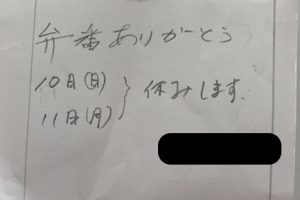 弁番ありがとう
10日(日)
11日(月) } 休みします.